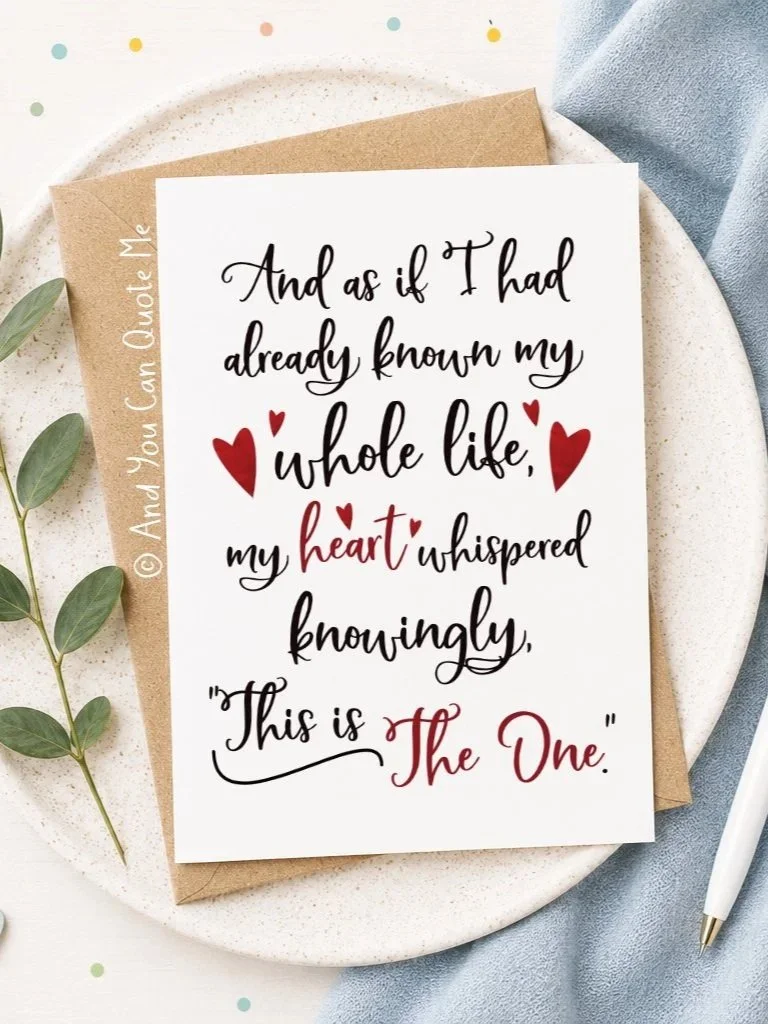 And as if I had
already known my
whole life,
my heart whispered
knowingly,
"This is The One."
© And You Can Quote Me